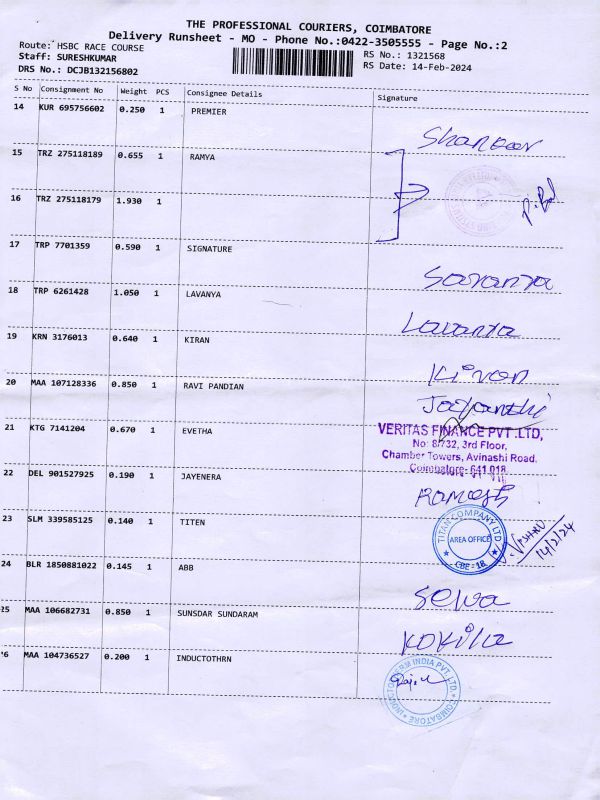 THE PROFESSIONAL COURIERS, COIMBATORE
Delivery Runsheet - MO - Phone No.:0422-3505555 - Page No.:2
Route: HSBC RACE COURSE
Staff: SURESHKUMAR
DRS No.: DCJB132156802
RS No.: 1321568
RS Date: 14-Feb-2024
S No Consignment No Weight PCS Consignee Details Signature
14 KUR 695756602 0.250 1 PREMIER
15 TRZ 275118189 0.655 1 RAMYA
16 TRZ 275118179 1.930 1
17 TRP 7701359 0.590 1 SIGNATURE
18 TRP 6261428 1.050 1 LAVANYA
Lavanya
19 KRN 3176013 0.640 1 KIRAN
Kiran
20 MAA 107128336 0.850 1 RAVI PANDIAN
Jayanthi
21 KTG 7141204 0.670 1 EVETHA
VERITAS FINANCE PVT.LTD,
No: 8/732, 3rd Floor,
Chamber Towers, Avinashi Road,
Coimbatore- 641 018
22 DEL 901527925 0.190 1 JAYENERA
Ramesh
23 SLM 339585125 0.140 1 TITEN
TITAN COMPANY LTD
AREA OFFICE
CBE - 18
14/2/24
24 BLR 1850881022 0.145 1 ABB
Selva
25 MAA 106682731 0.850 1 SUNSDAR SUNDARAM
Kokila
26 MAA 104736527 0.200 1 INDUCTOTHRN
INDUCTOTHERM INDIA PVT. LTD.
COIMBATORE